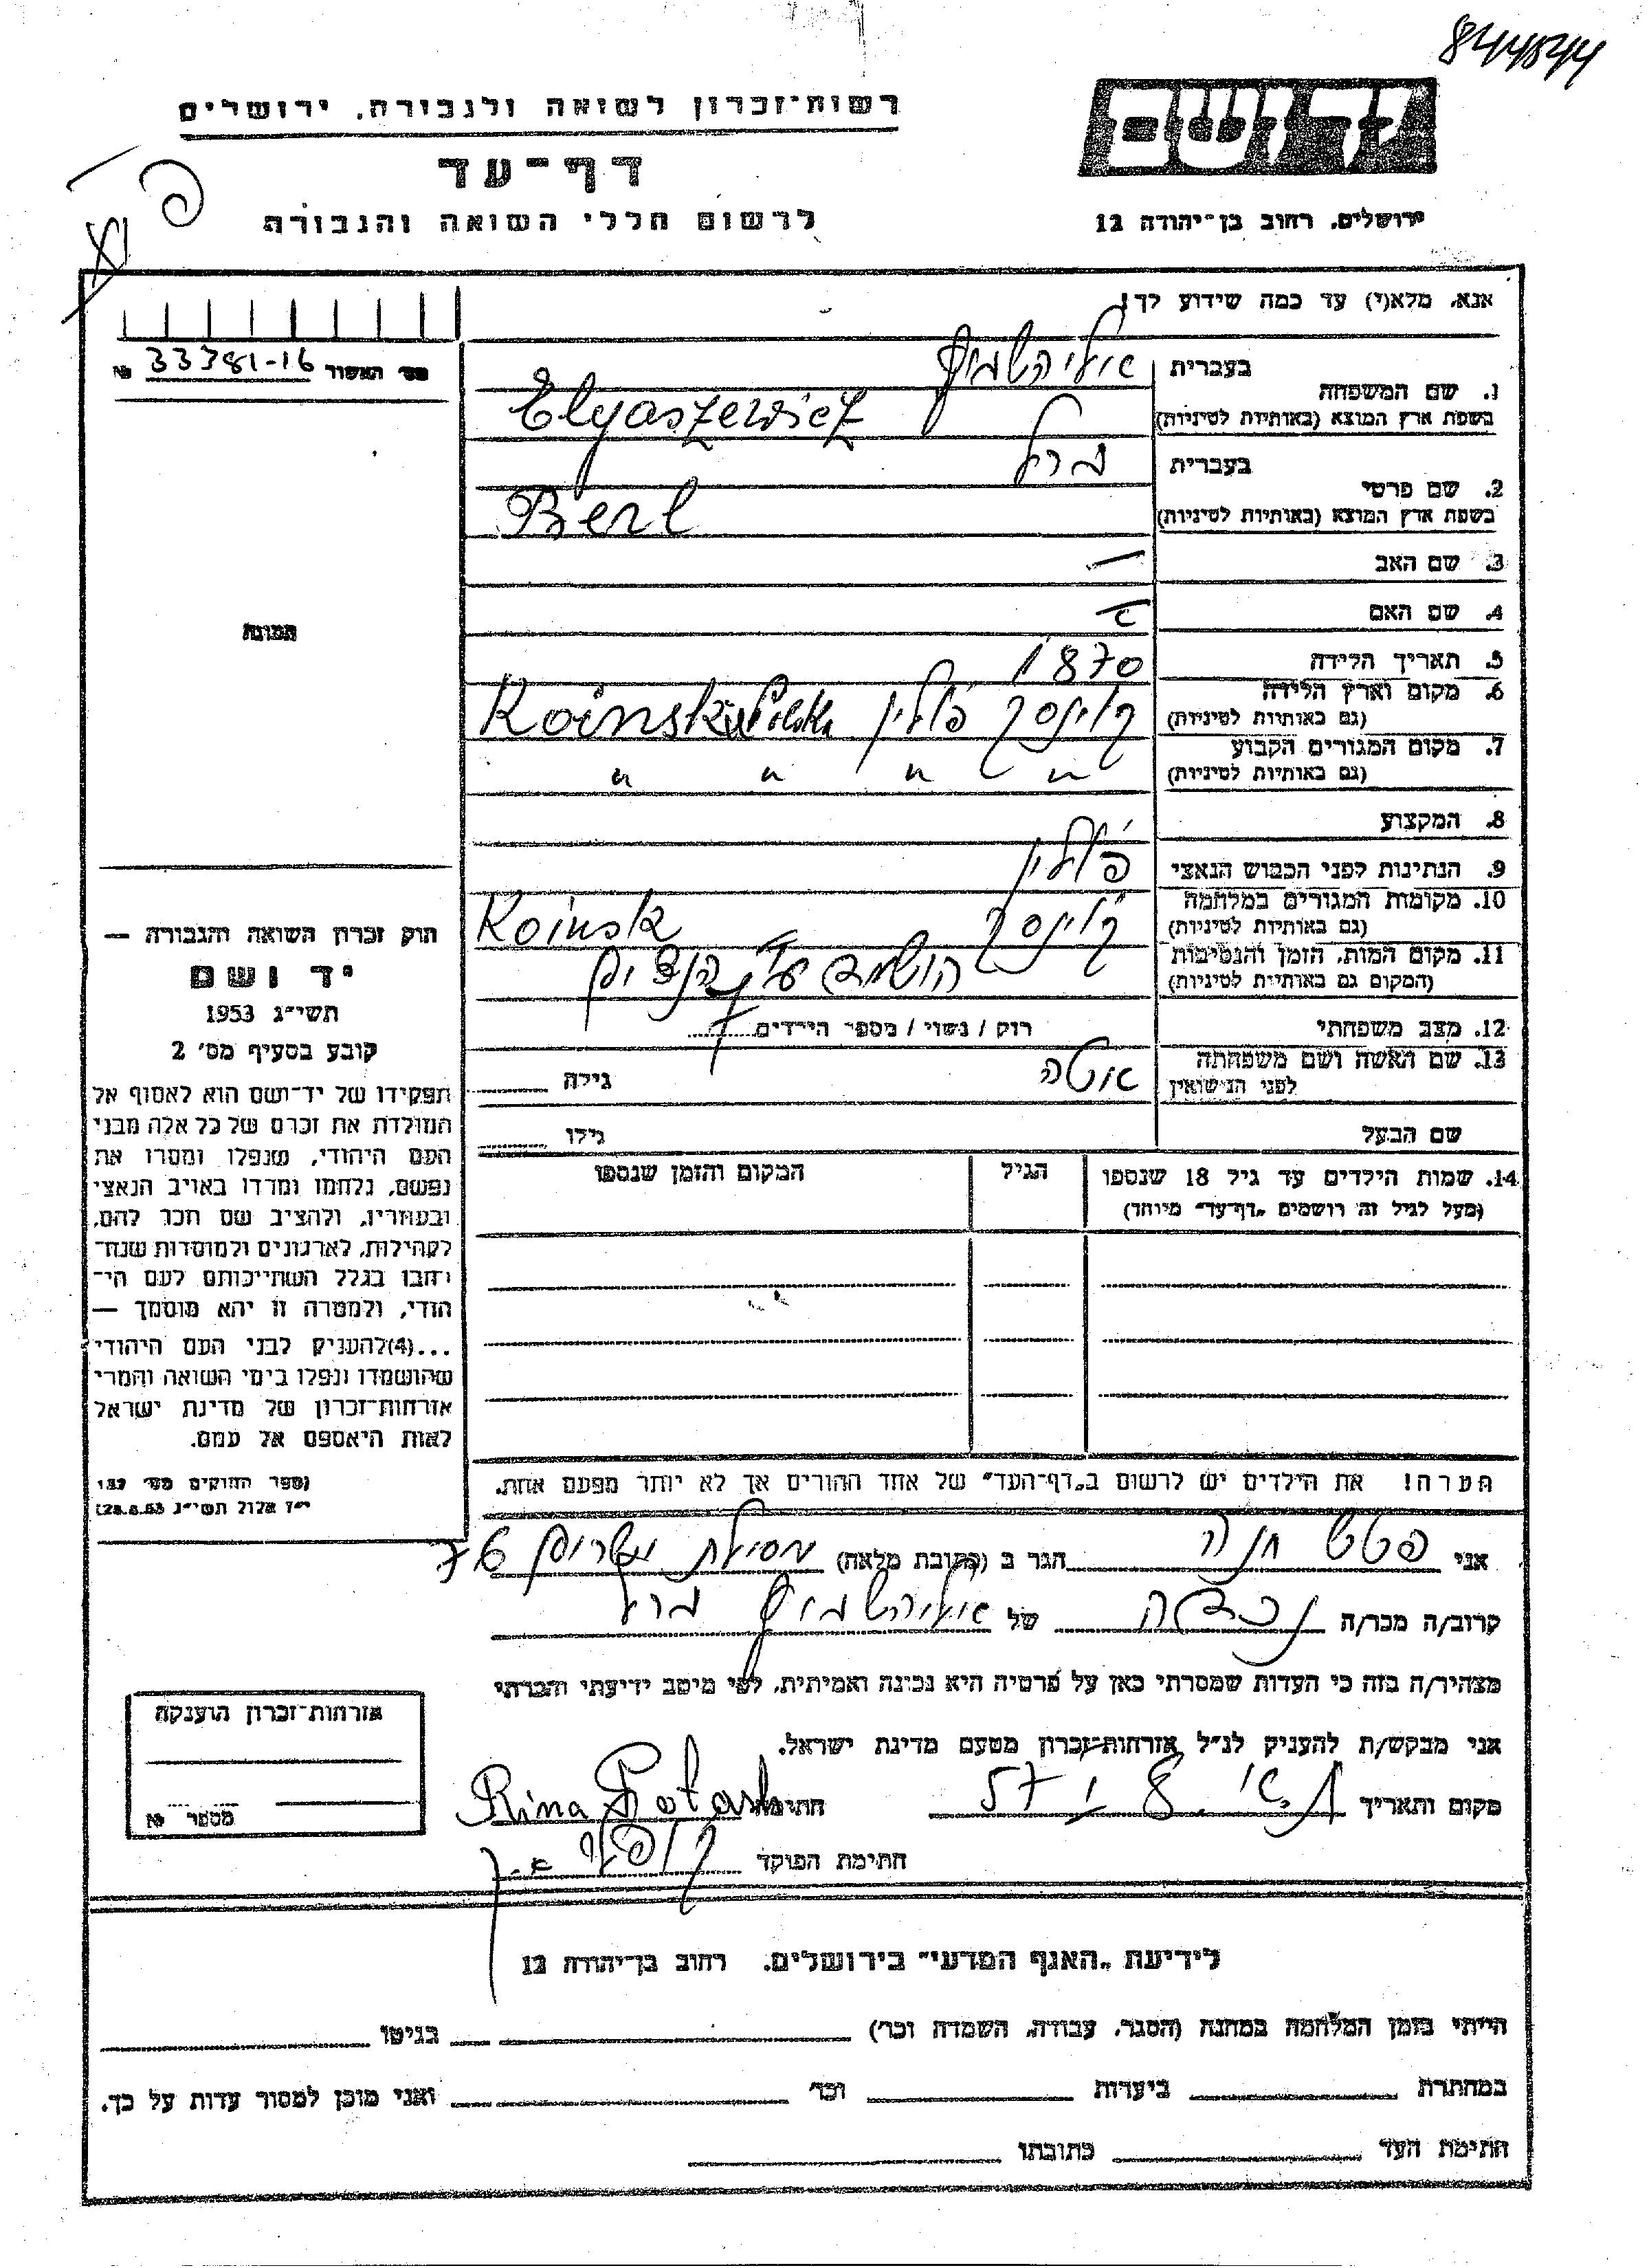 844544
יד ושם
רשות־זכרון לשואה ולגבורה, ירושלים
דף־עד
לרשום חללי השואה והגבורה
ירושלים, רחוב בן־יהודה 12
אנא, מלא(י) עד כמה שידוע לך!
מס׳ האשור 33381-16 №
1. שם המשפחה
בעברית
Elyaszewicz
בשפת ארץ המוצא (באותיות לטיניות)
2. שם פרטי
בעברית ברל
Berl
בשפת ארץ המוצא (באותיות לטיניות)
3. שם האב —
4. שם האם
5. תאריך הלידה 1870
6. מקום וארץ הלידה פולין Koinsk Polska
(גם באותיות לטיניות)
7. מקום המגורים הקבוע " " " "
(גם באותיות לטיניות)
8. המקצוע
9. הנתינות לפני הכבוש הנאצי פולין
10. מקומות המגורים במלחמה Koinsk
(גם באותיות לטיניות)
11. מקום המות, הזמן והנסיבות
(המקום גם באותיות לטיניות)
12. מצב משפחתי רוק / נשוי / מספר הילדים 7
13. שם האשה ושם משפחתה
לפני הנישואין
גילה
שם הבעל גילו
14. שמות הילדים עד גיל 18 שנספו הגיל המקום והזמן שנספו
(מעל לגיל זה רושמים „דף־עד״ מיוחד)
תמונה
חוק זכרון השואה והגבורה —
יד ושם
תשי״ג 1953
קובע בסעיף מס׳ 2
תפקידו של יד־ושם הוא לאסוף אל
המולדת את זכרם של כל אלה מבני
העם היהודי, שנפלו ומסרו את
נפשם, נלחמו ומרדו באויב הנאצי
ובעוזריו, ולהציב שם וזכר להם,
לקהילות, לארגונים ולמוסדות שנח־
רבו בגלל השתייכותם לעם הי־
הודי, ולמטרה זו יהא מוסמך —
...(4)להעניק לבני העם היהודי
שהושמדו ונפלו בימי השואה והמרי
אזרחות־זכרון של מדינת ישראל
לאות היאספם אל עמם.
(ספר החוקים מס׳ 132
י״ז אלול תשי״ג 28.8.53)
הערה! את הילדים יש לרשום ב„דף־העד״ של אחד ההורים אך לא יותר מפעם אחת.
אני חנה הגר ב (כתובת מלאה)
קרוב/ה מכר/ה נכדה של ברל
מצהיר/ה בזה כי העדות שמסרתי כאן על פרטיה היא נכונה ואמיתית, לפי מיטב ידיעתי והכרתי
אני מבקש/ת להעניק לנ״ל אזרחות־זכרון מטעם מדינת ישראל.
מקום ותאריך חתימה Rina
חתימת הפוקד
אזרחות־זכרון הוענקה
מספר №
לידיעת „האגף המדעי״ בירושלים, רחוב בן־יהודה 12
הייתי בזמן המלחמה במחנה (הסגר, עבודה, השמדה וכו׳) בגיטו
במחתרת ביערות וכו׳ ואני מוכן למסור עדות על כך.
חתימת העד כתובתו